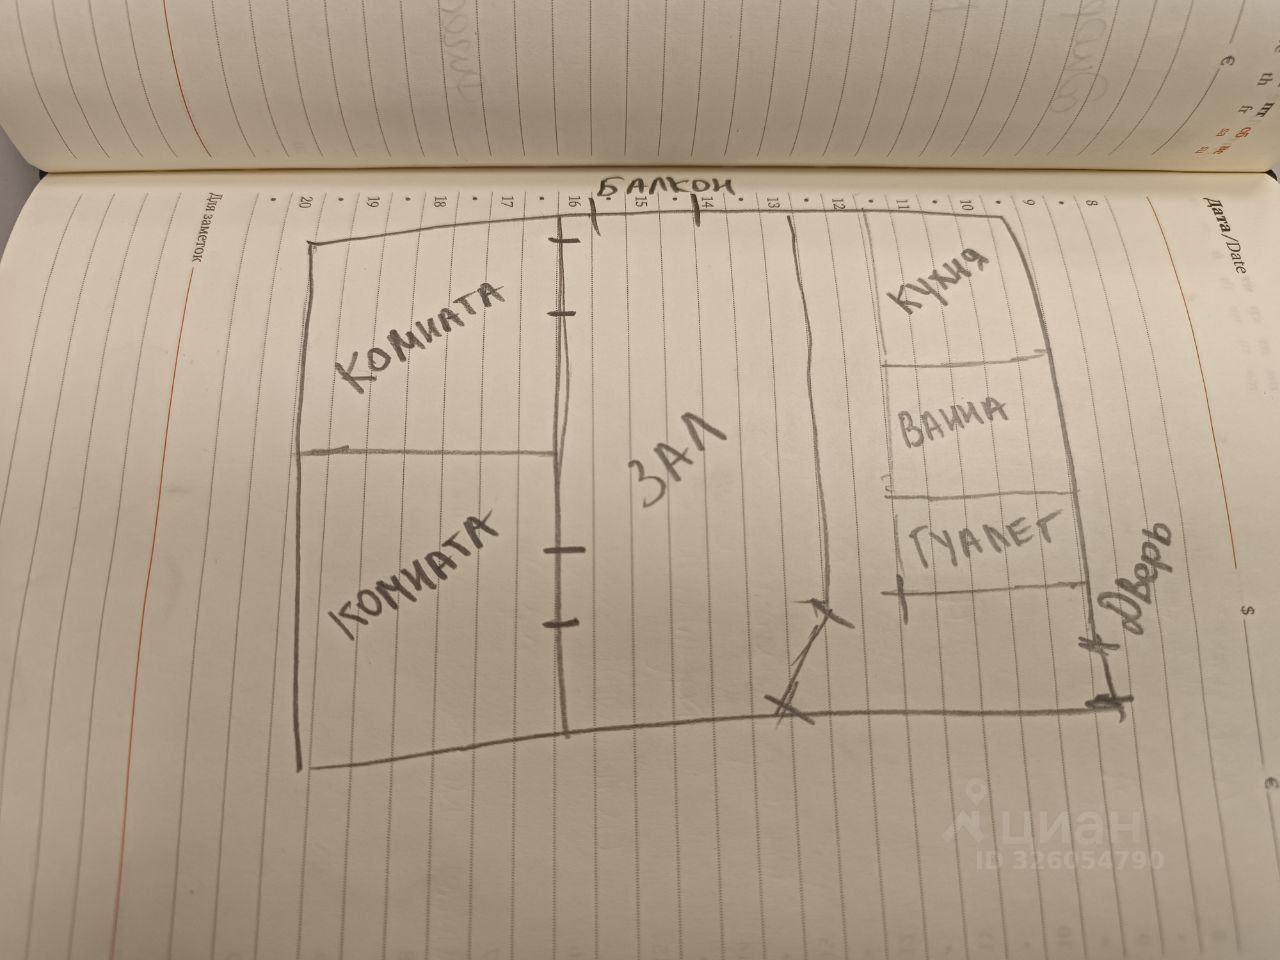 €
th
fr
Для заметок
20
19
18
17
16
15
14
13
12
11
10
9
8
Дата/Date
БАЛКОН
КОМНАТА
ЗАЛ
КУХНЯ
ВАННА
ТУАЛЕТ
Дверь
КОМНАТА
$
€
циан
ID 326054790